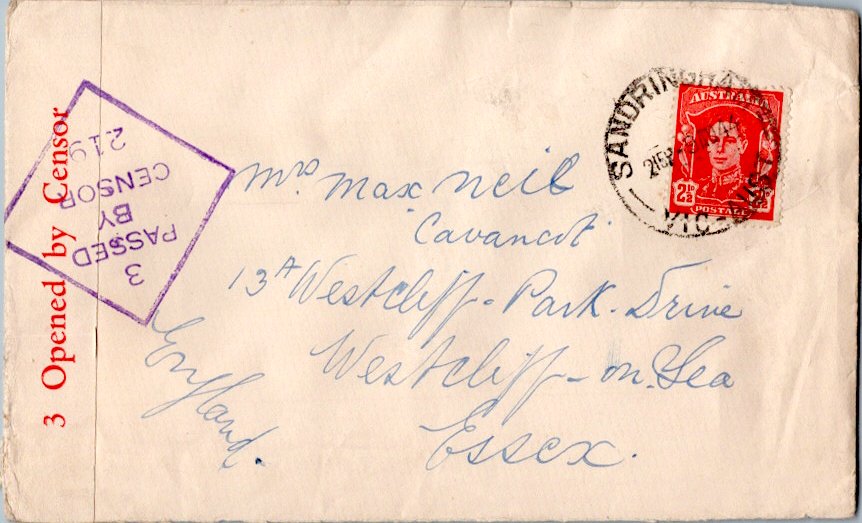 3 Opened by Censor
3
PASSED
BY
CENSOR
219
SANDRINGHAM
VIC-AUST
AUSTRALIA
2½D
POSTAGE
Mrs Max Neil
13A Westcliff-Park-Drive
Westcliff-on-Sea
Essex.
England.